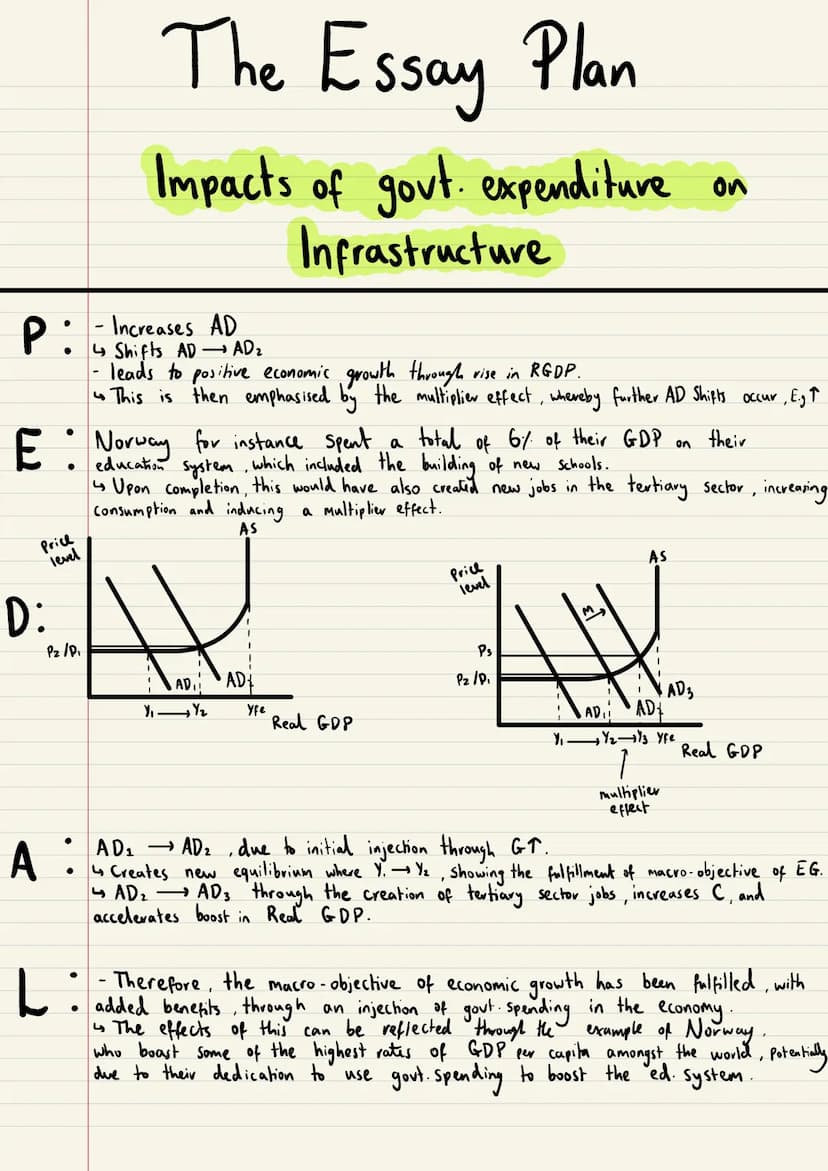 The Essay Plan
Impacts of govt. expenditure on
Infrastructure
P: - Increases AD
↳ Shifts AD → AD₂
- leads to positive economic growth through rise in RGDP.
↳ This is then emphasised by the multiplier effect, whereby further AD Shifts occur, Eg↑
E: Norway for instance spent a total of 6% of their GDP on their
education system, which included the building of new schools.
↳ Upon completion, this would have also created new jobs in the tertiary sector, increasing
consumption and inducing a multiplier effect.
D:
Price
level
AS
P₂/P₁
AD₁
AD₂
Y₁ → Y₂
Yfe
Real GDP
Price
level
AS
M
P₃
P₂/P₁
AD₁
AD₂
AD₃
Y₁ → Y₂ → Y₃ Yfe
Real GDP
multiplier
effect
A: AD₁ → AD₂, due to initial injection through G↑.
↳ Creates new equilibrium where Y₁ → Y₂, showing the fulfillment of macro-objective of EG.
↳ AD₂ → AD₃ through the creation of tertiary sector jobs, increases C, and
accelerates boost in Real GDP.
L: - Therefore, the macro-objective of economic growth has been fulfilled, with
added benefits, through an injection of govt. spending in the economy.
↳ The effects of this can be reflected through the example of Norway,
who boast some of the highest rates of GDP per capita amongst the world, potentially
due to their dedication to use govt. spending to boost the ed. system.